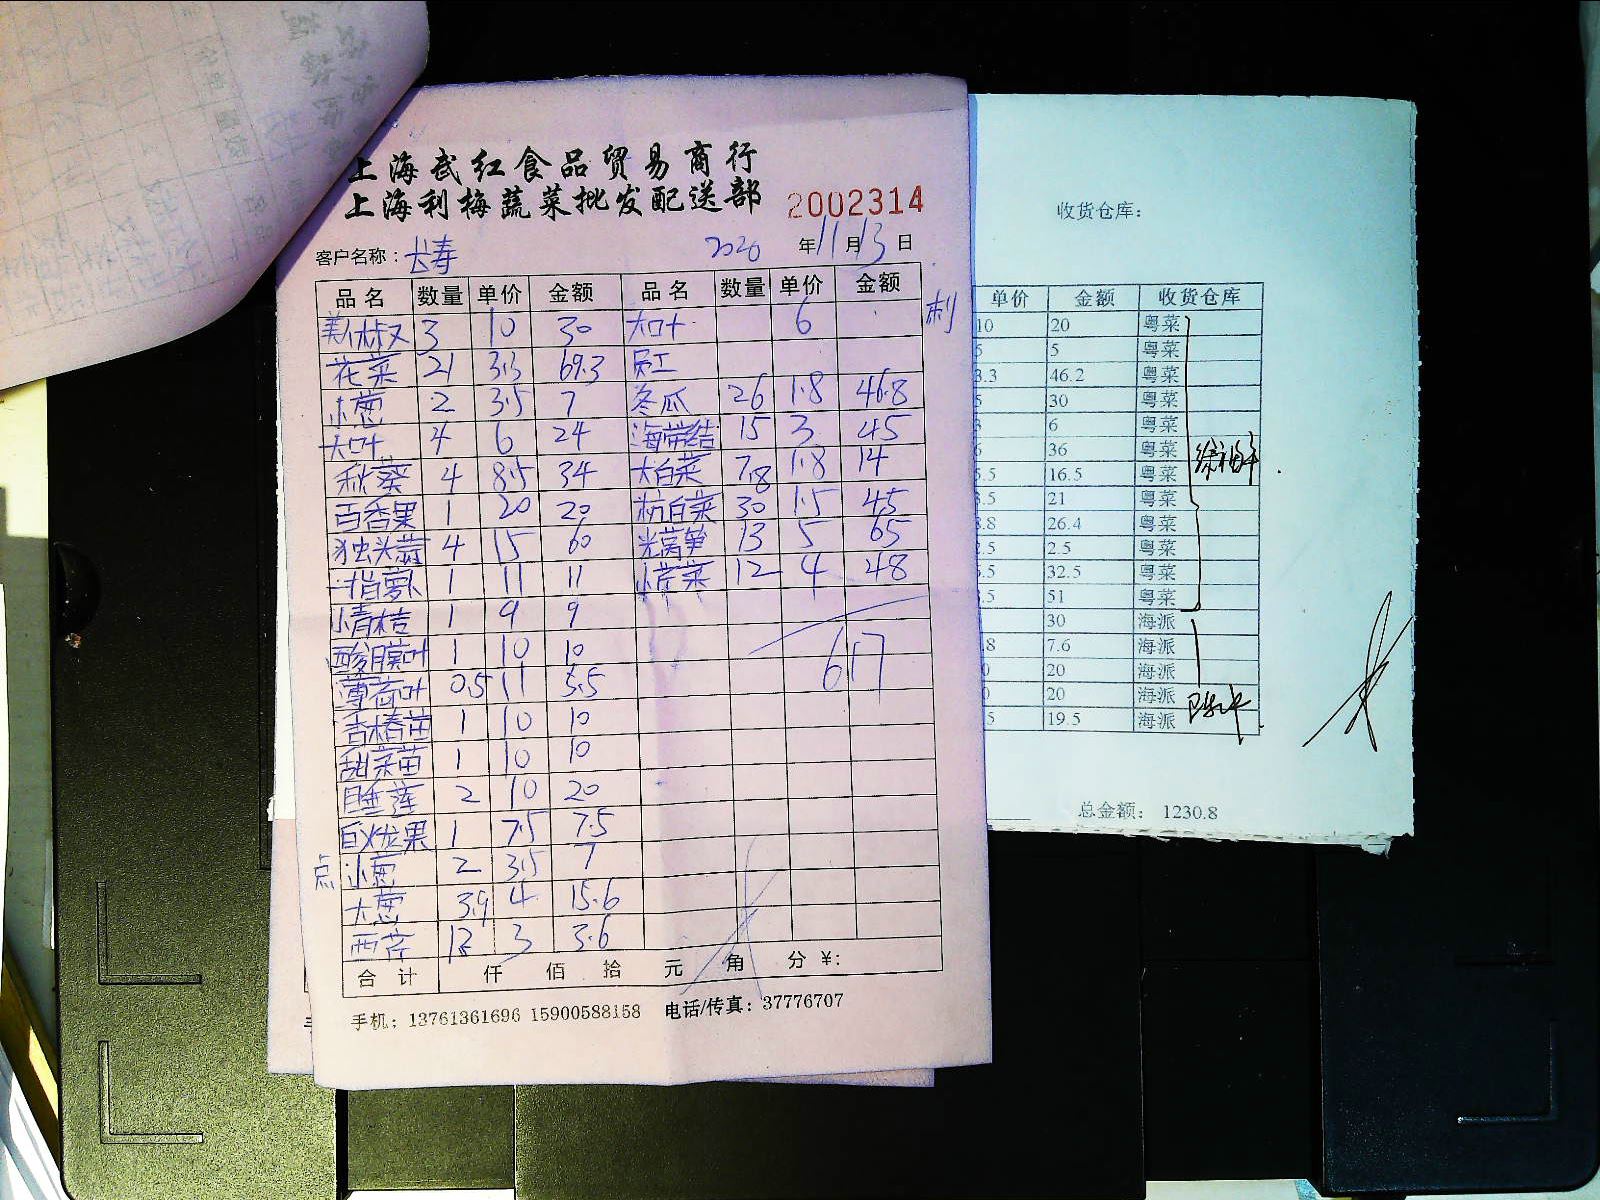 上海武红食品贸易商行
上海利梅蔬菜批发配送部 2002314
客户名称：长寿 2020年11月13日
品名 数量 单价 金额 品名 数量 单价 金额
美人椒 3 10 30 大口十 6 利
花菜 21 3.3 69.3 员工
小葱 2 3.5 7 冬瓜 26 1.8 46.8
大口十 4 6 24 海带结 15 3 45
秋葵 4 8.5 34 大白菜 7.8 1.8 14
百香果 1 20 20 杭白菜 30 1.5 45
独头蒜 4 15 60 光莴笋 13 5 65
手指萝卜 1 11 11 小荠菜 12 4 48
小青桔 1 9 9
酸膜叶 1 10 10
薄荷叶 0.5 11 5.5 617
香椿苗 1 10 10
甜菜苗 1 10 10
睡莲 2 10 20
白火龙果 1 7.5 7.5
点 小葱 2 3.5 7
大葱 3.9 4 15.6
西芹 3 3.6
合计 仟 佰 拾 元 角 分 ¥:
手机：13761361696 15900588158 电话/传真：37776707
收货仓库：
单价 金额 收货仓库
10 20 粤菜
5 5 粤菜
3.3 46.2 粤菜
5 30 粤菜
6 粤菜
36 粤菜
5.5 16.5 粤菜
3.5 21 粤菜
8.8 26.4 粤菜
2.5 2.5 粤菜
6.5 32.5 粤菜
.5 51 粤菜
30 海派
.8 7.6 海派
0 20 海派
0 20 海派
5 19.5 海派
总金额： 1230.8